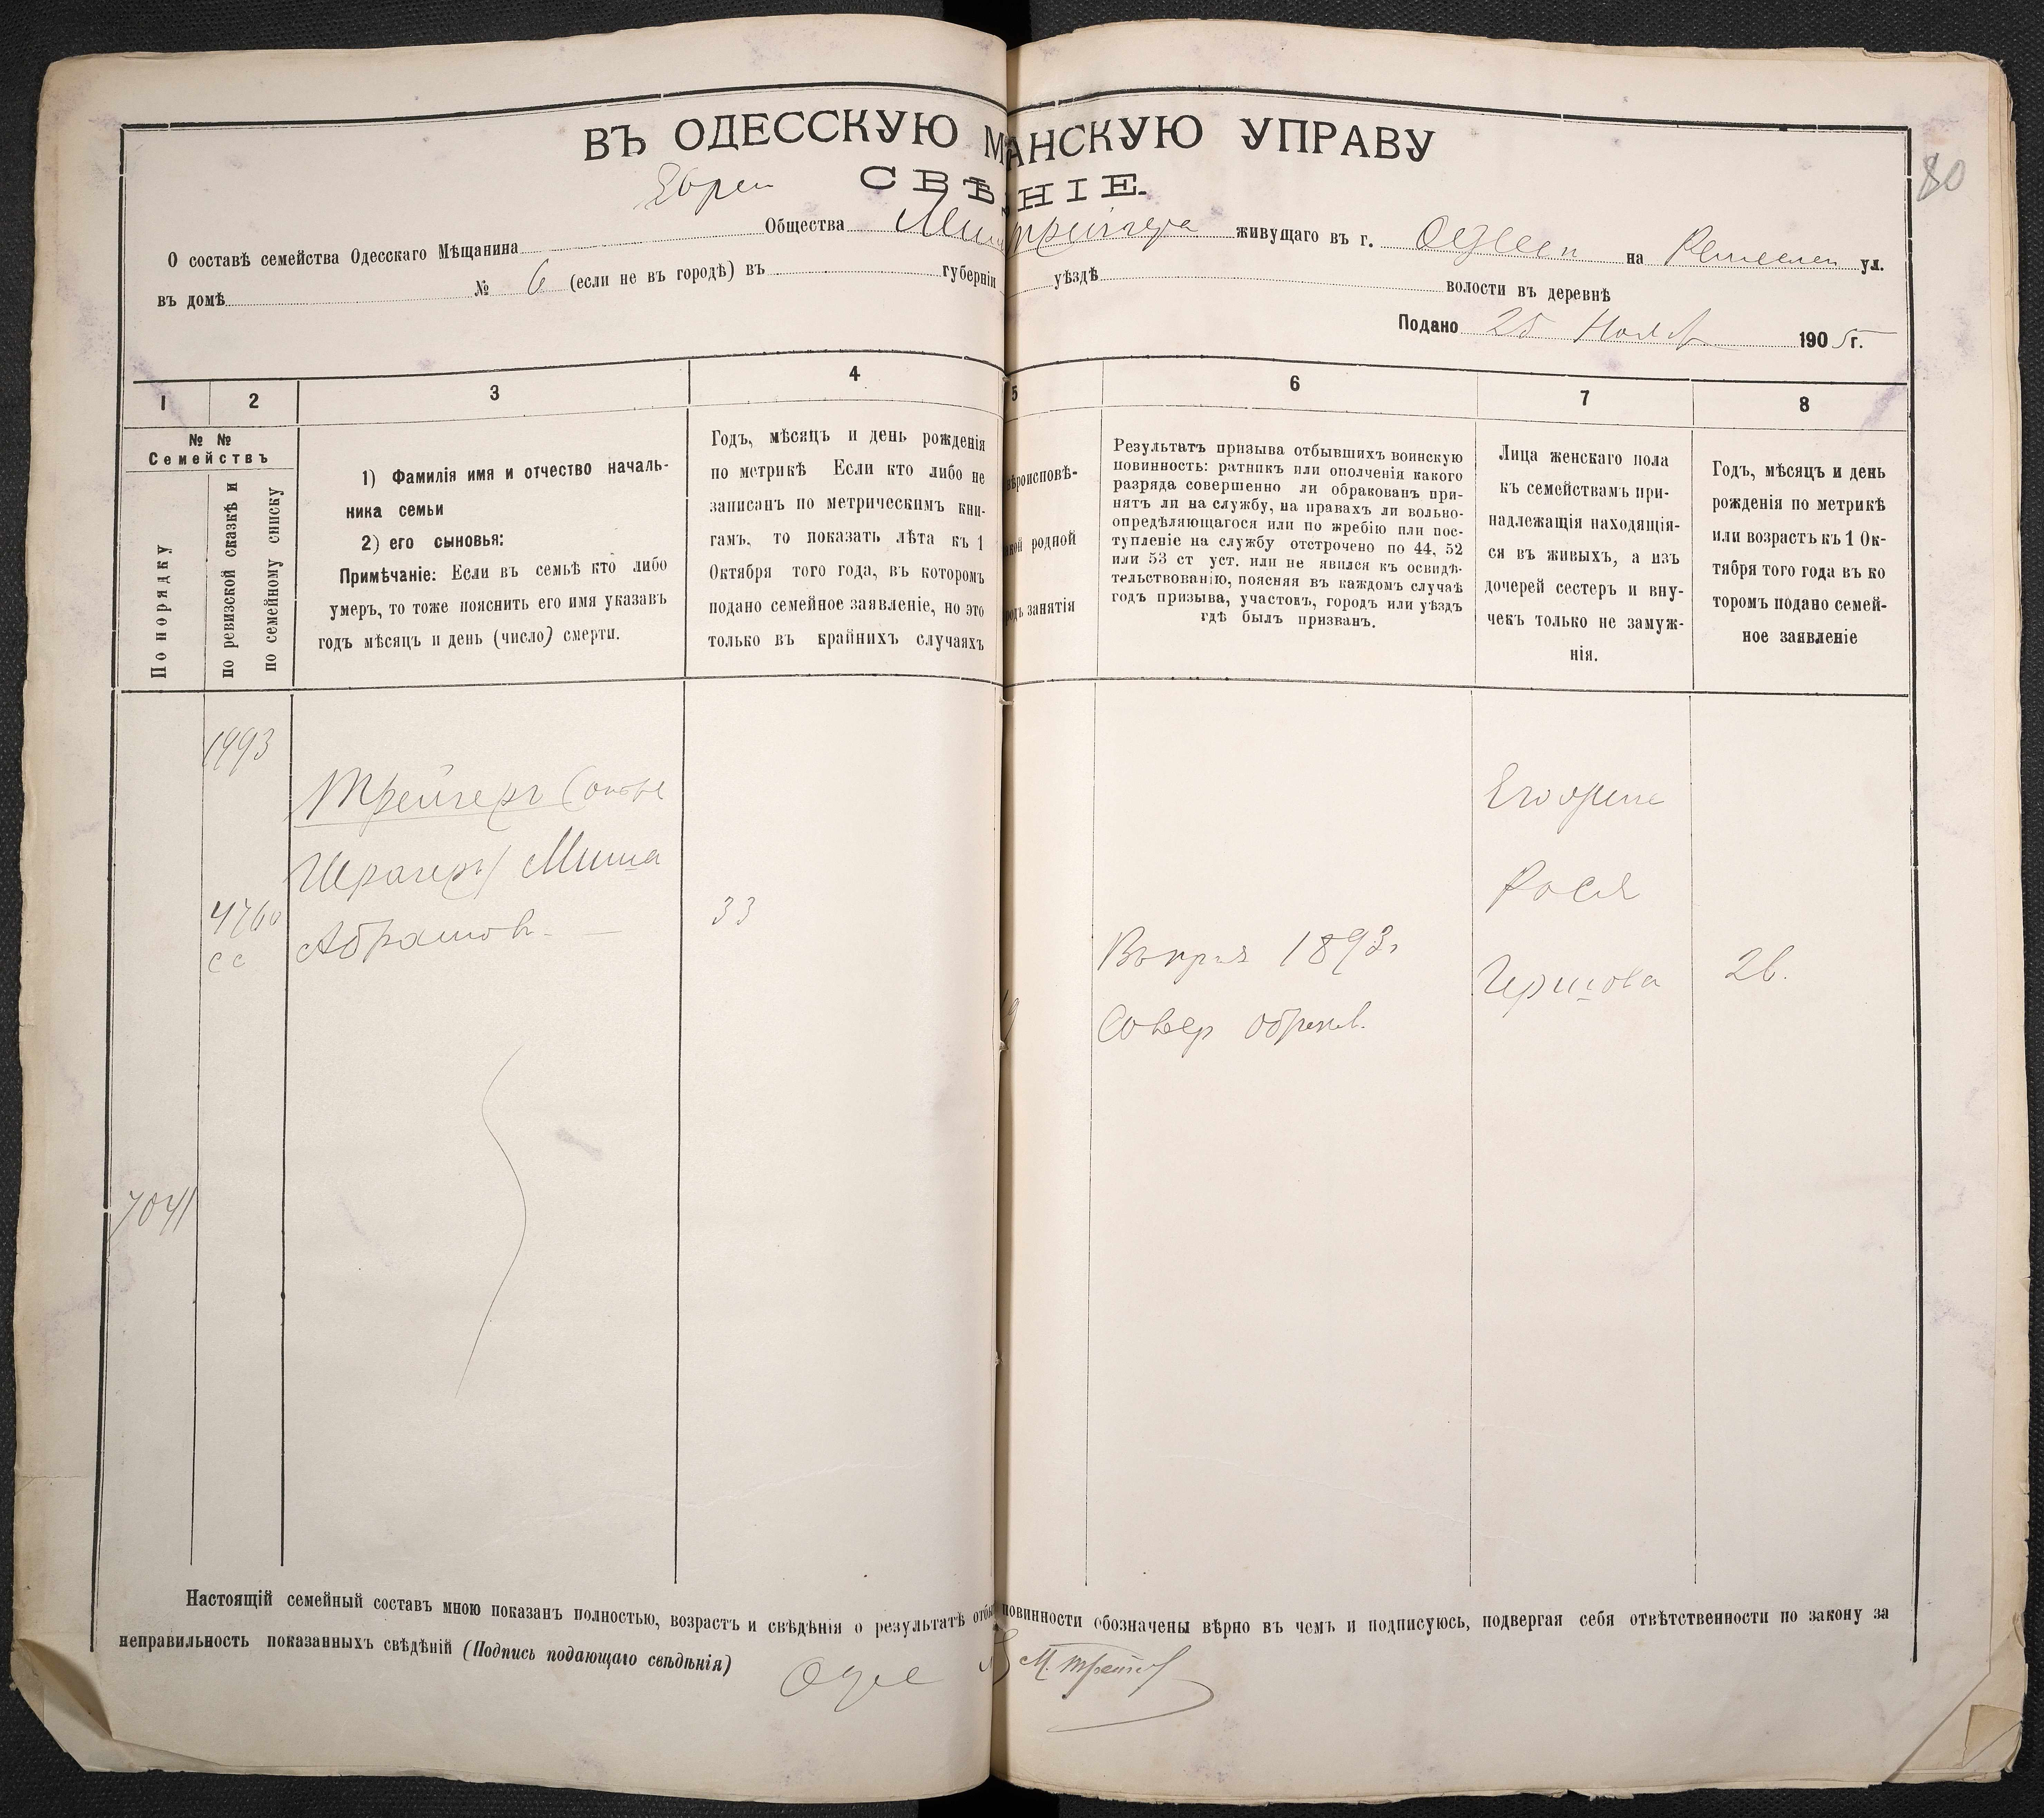 80
ВЪ ОДЕССКУЮ М АНСКУЮ УПРАВУ
СВѢ НІЕ.
Евреи
О составѣ семейства Одесскаго Мѣщанина Общества живущаго въ г. на ул.
въ домѣ № 6 (если не въ городѣ) въ губерніи уѣздѣ волости въ деревнѣ
Подано 25 Нояб 1905 г.
1 2 3 4 5 6 7 8
№ №
Семействъ
По порядку
по ревизской сказкѣ и
по семейному списку
1) Фамилія имя и отчество началь-
ника семьи
2) его сыновья:
Примѣчаніе: Если въ семьѣ кто либо
умеръ, то тоже пояснить его имя указавъ
годъ мѣсяцъ и день (число) смерти.
Годъ, мѣсяцъ и день рожденія
по метрикѣ Если кто либо не
записанъ по метрическимъ кни-
гамъ, то показать лѣта къ 1
Октября того года, въ которомъ
подано семейное заявленіе, но это
только въ крайнихъ случаяхъ
ѣроисповѣ-
кой родной
родъ занятія
Результатъ призыва отбывшихъ воинскую
повинность: ратникъ или ополченія какого
разряда совершенно ли обракованъ при-
нятъ ли на службу, на правахъ ли вольно-
опредѣляющагося или по жребію или пос-
тупленіе на службу отстрочено по 44, 52
или 53 ст уст. или не явился къ освидѣ-
тельствованію, поясняя въ каждомъ случаѣ
годъ призыва, участокъ, городъ или уѣздъ
гдѣ былъ призванъ.
Лица женскаго пола
къ семействамъ при-
надлежащія находящія-
ся въ живыхъ, а изъ
дочерей сестеръ и вну-
чекъ только не замуж-
нія.
Годъ, мѣсяцъ и день
рожденія по метрикѣ
или возрастъ къ 1 Ок-
тября того года въ ко
торомъ подано семей-
ное заявленіе
1993
Трейгеръ
Шрагеръ) Миша
Абрамов.
4760
сс
33
1893г
Совер обраков.
Рося
Гершова
26.
7041
Настоящій семейный составъ мною показанъ полностью, возрастъ и свѣдѣнія о результатѣ отбы повинности обозначены вѣрно въ чемъ и подписуюсь, подвергая себя отвѣтственности по закону за
неправильность показанныхъ свѣдѣній (Подпись подающаго свѣдѣнія)